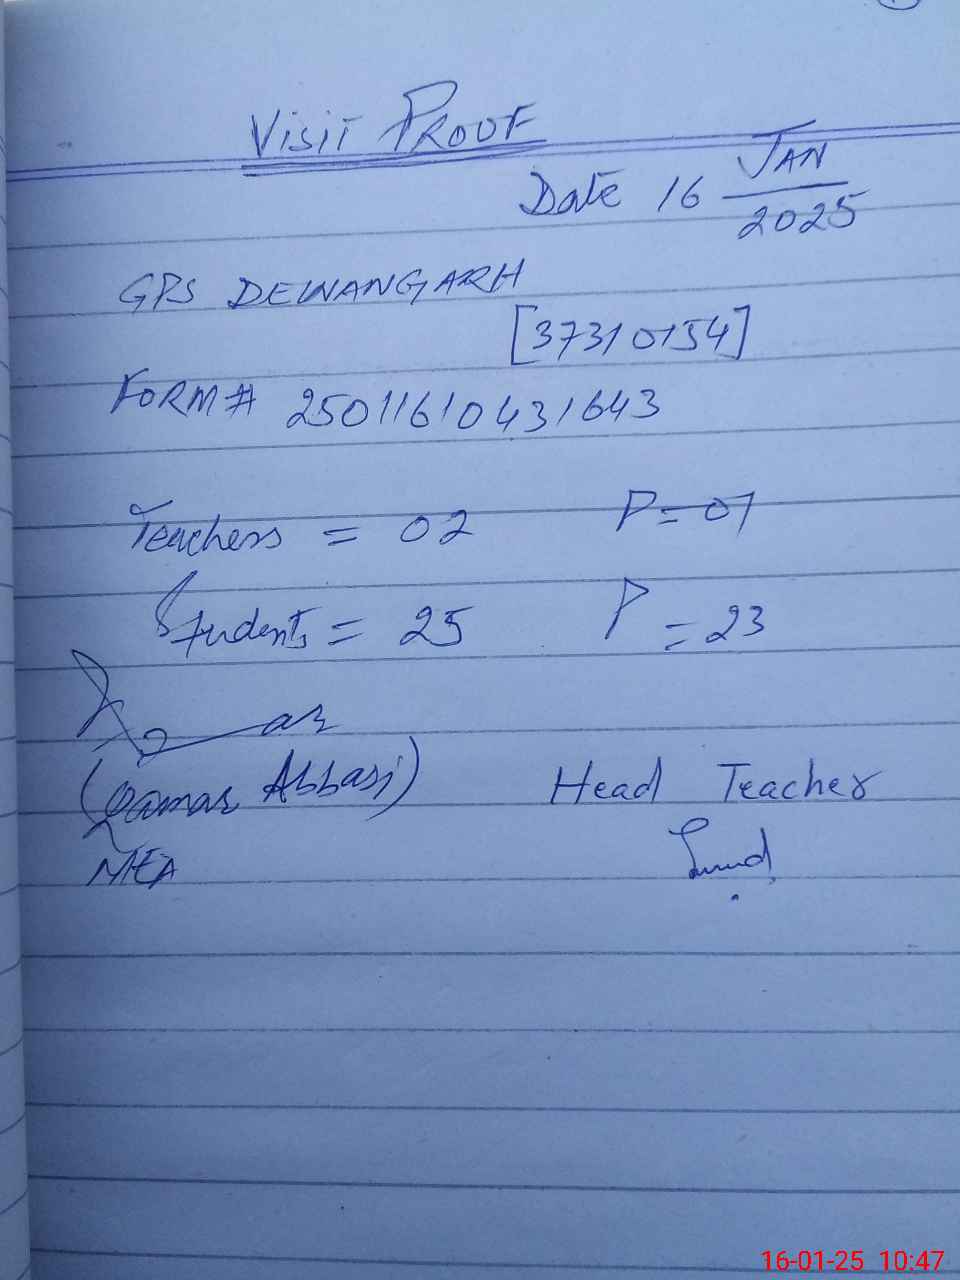 Visit Proof
Date 16 Jan
2025
GPS DEWANGARH
[37310154]
FORM# 25011610431643
Teachers = 02 P = 01
Students = 25 P = 23
(Qamar Abbasi) Head Teacher
MEA
16-01-25 10:47